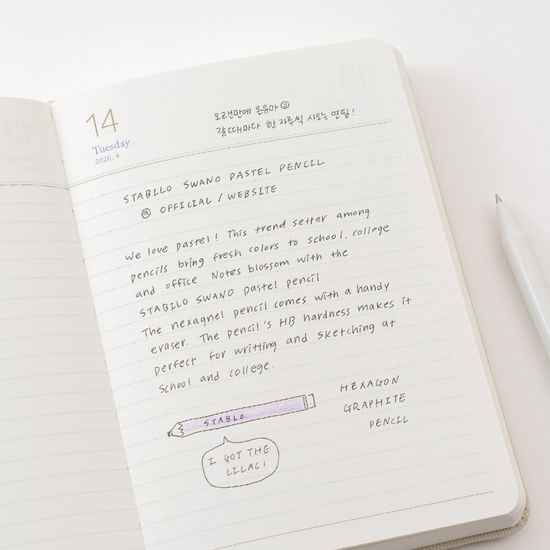 14
Tuesday
2026. 4
오랜만에 온유마
갈때마다 한 자루씩 사오는 연필!
STABILO SWANO PASTEL PENCIL
@ OFFICIAL / WEBSITE
We love pastel! This trend setter among
pencils bring fresh colors to school, college
and office Notes blossom with the
STABILO SWANO Pastel pencil
The hexagnel pencil comes with a handy
eraser. The pencil's HB hardness makes it
perfect for writting and sketching at
school and college.
STABLO
I GOT THE
LILAC!
HEXAGON
GRAPHITE
PENCIL